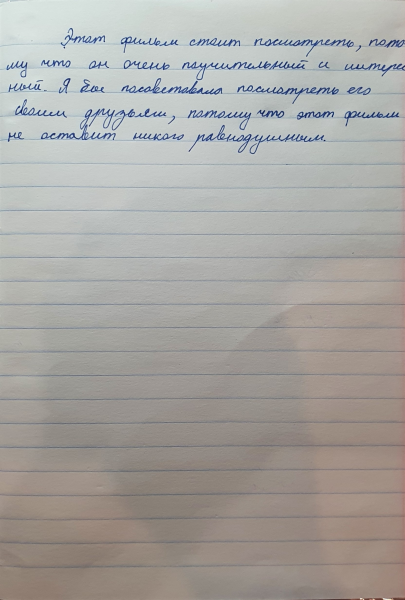 Этот фильм стоит посмотреть, пото
му что он очень поучительный и интерес
ный. Я бы посоветовала посмотреть его
своим друзьям, потому что этот фильм
не оставит никого равнодушным.